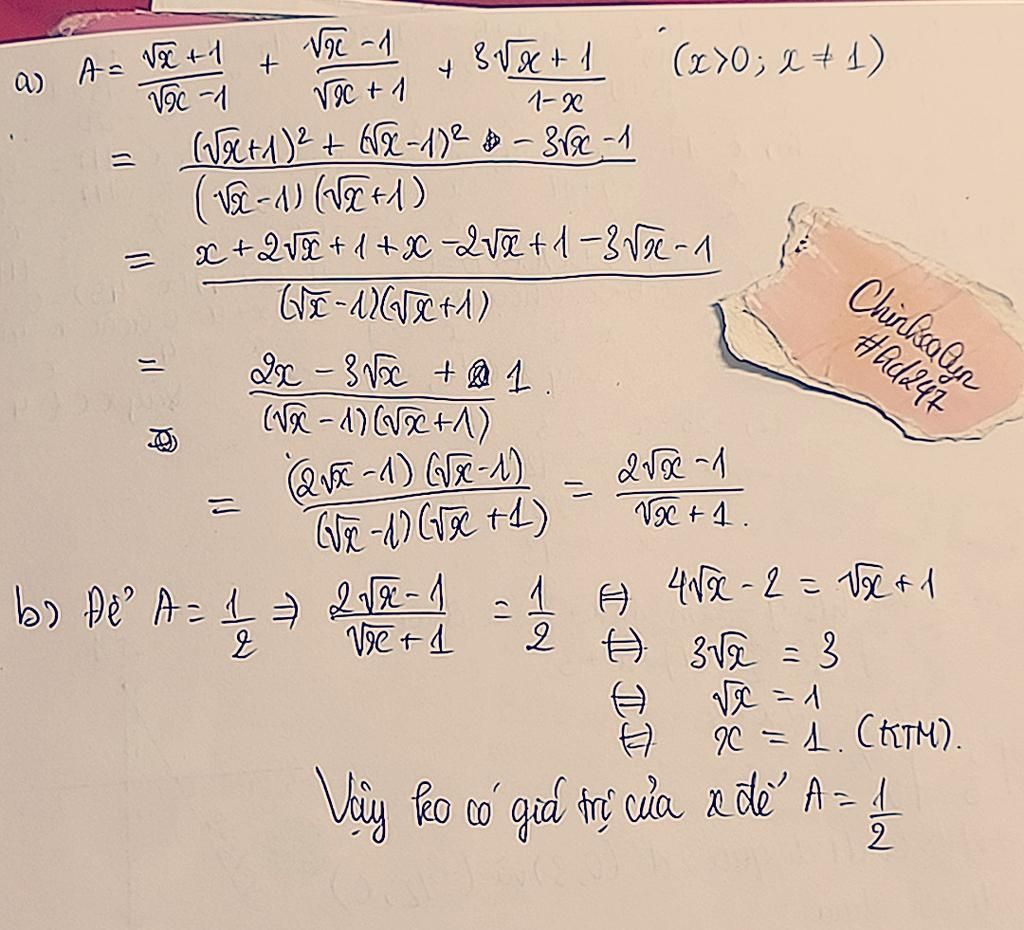 a) A = (√x + 1)/(√x - 1) + (√x - 1)/(√x + 1) + (3√x + 1)/(1 - x) (x>0; x ≠ 1)
= ((√x+1)² + (√x-1)² - 3√x - 1)/((√x-1)(√x+1))
= (x + 2√x + 1 + x - 2√x + 1 - 3√x - 1)/((√x-1)(√x+1))
= (2x - 3√x + 1)/((√x - 1)(√x+1)).
= ((2√x - 1)(√x - 1))/((√x - 1)(√x + 1)) = (2√x - 1)/(√x + 1).
b) Để A = 1/2 ⇒ (2√x - 1)/(√x + 1) = 1/2 ⇔ 4√x - 2 = √x + 1
⇔ 3√x = 3
⇔ √x = 1
⇔ x = 1. (KTM).
Vậy ko có giá trị của x để A = 1/2
#Ad247